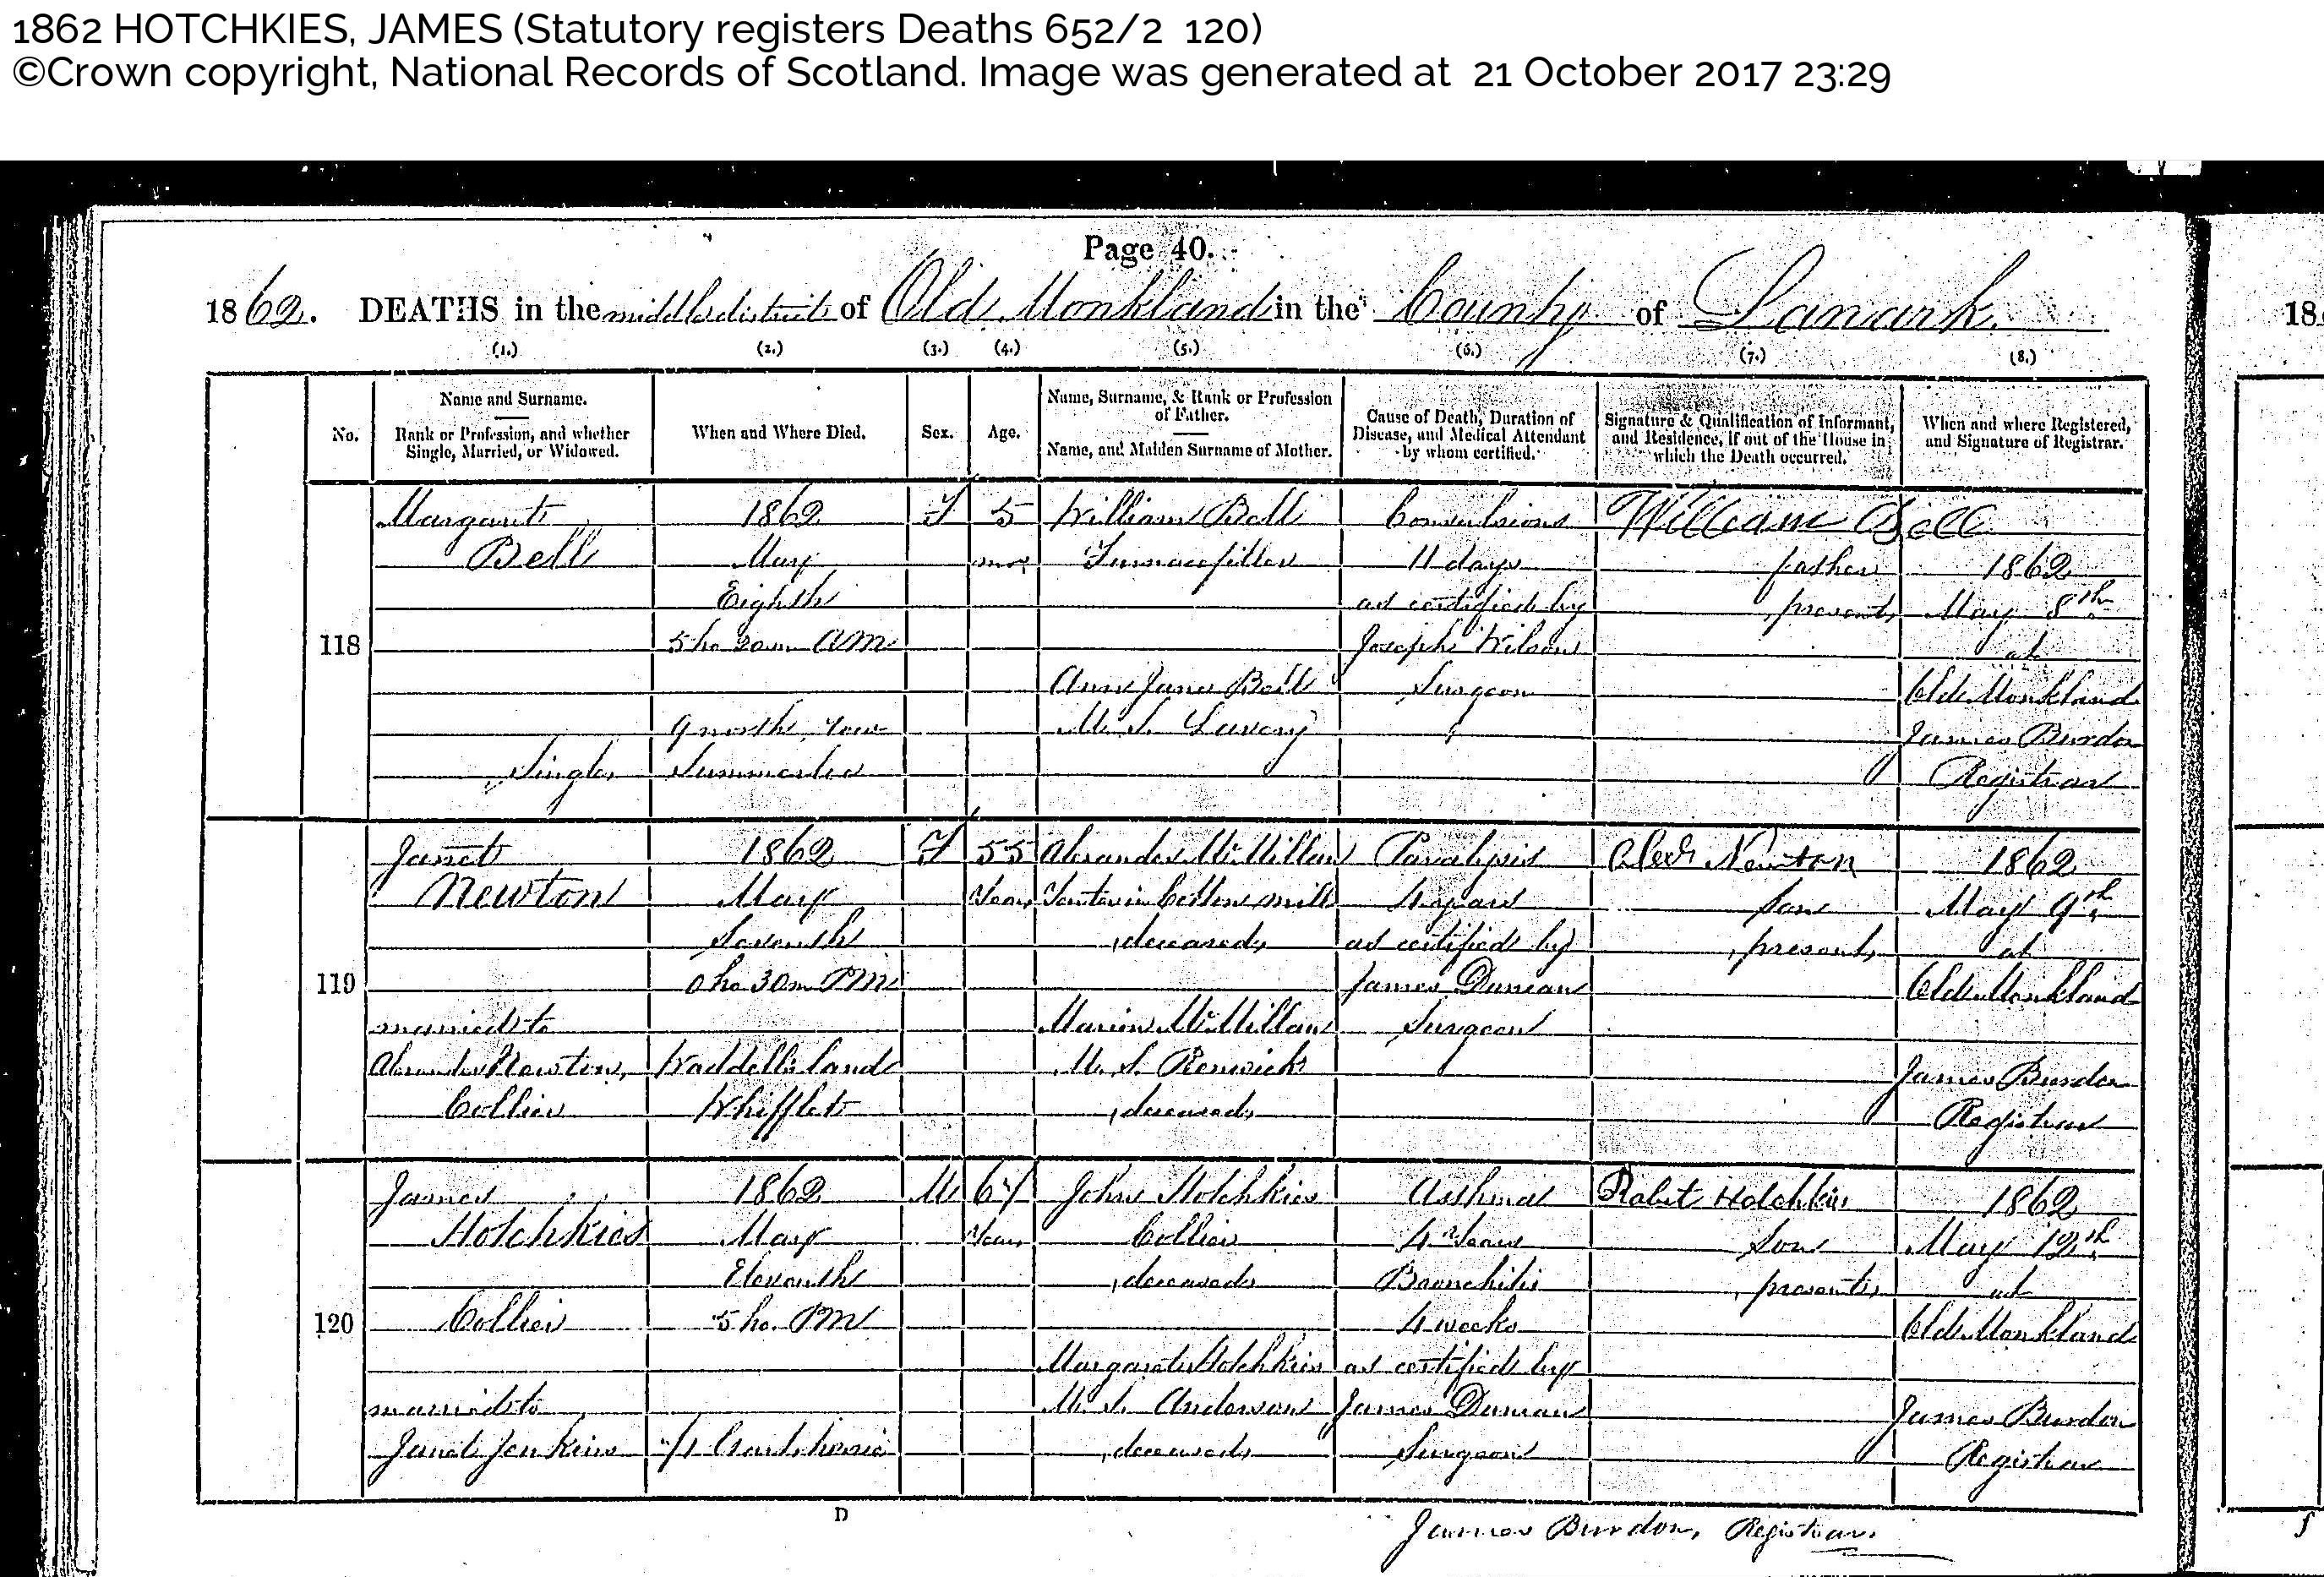 1862 HOTCHKIES, JAMES (Statutory registers Deaths 652/2 120)
©Crown copyright, National Records of Scotland. Image was generated at 21 October 2017 23:29
Page 40.
1862. DEATHS in the middle district of Old Monkland in the County of Lanark.
(1.) (2.) (3.) (4.) (5.) (6.) (7.) (8.)
No.
Name and Surname.
Rank or Profession, and whether
Single, Married, or Widowed.
When and Where Died.
Sex.
Age.
Name, Surname, & Rank or Profession
of Father.
Name, and Maiden Surname of Mother.
Cause of Death, Duration of
Disease, and Medical Attendant
by whom certified.
Signature & Qualification of Informant,
and Residence, if out of the House in
which the Death occurred.
When and where Registered,
and Signature of Registrar.
118
Margaret
Bell
Single
1862
May
Eighth
5 ho 20 m AM
9 north row
Summerlee
F
5
mos
William Bell
Furnacefiller
Ann Jane Bell
M. S. Lavery
Convulsions
11 days
as certified by
Joseph Wilson
Surgeon
William Bell
father
present
1862
May 8th
at
Old Monkland
James Burdon
Registrar
119
Janet
Newton
married to
Alexander Newton,
Collier
1862
May
Seventh
0 ho 30 m PM
Waddells land
Whifflet
F
55
Years
Alexander McMillan
in Cotton mill
deceased
Marion McMillan
M. S. Renwick
deceased
Paralysis
4 years
as certified by
James Duncan
Surgeon
Alexr Newton
Son
present
1862
May 9th
at
Old Monkland
James Burdon
Registrar
120
James
Hotchkies
Collier
married to
Janet Jenkins
1862
May
Eleventh
5 ho. PM
Gartsherrie
M
67
Years
John Hotchkies
Collier
deceased
Margaret Hotchkies
M. S. Anderson
deceased
Asthma
4 Years
Bronchitis
4 weeks
as certified by
James Duncan
Surgeon
Robert Hotchkies
Son
present
1862
May 12th
at
Old Monkland
James Burdon
Registrar
D
James Burdon, Registrar.
18